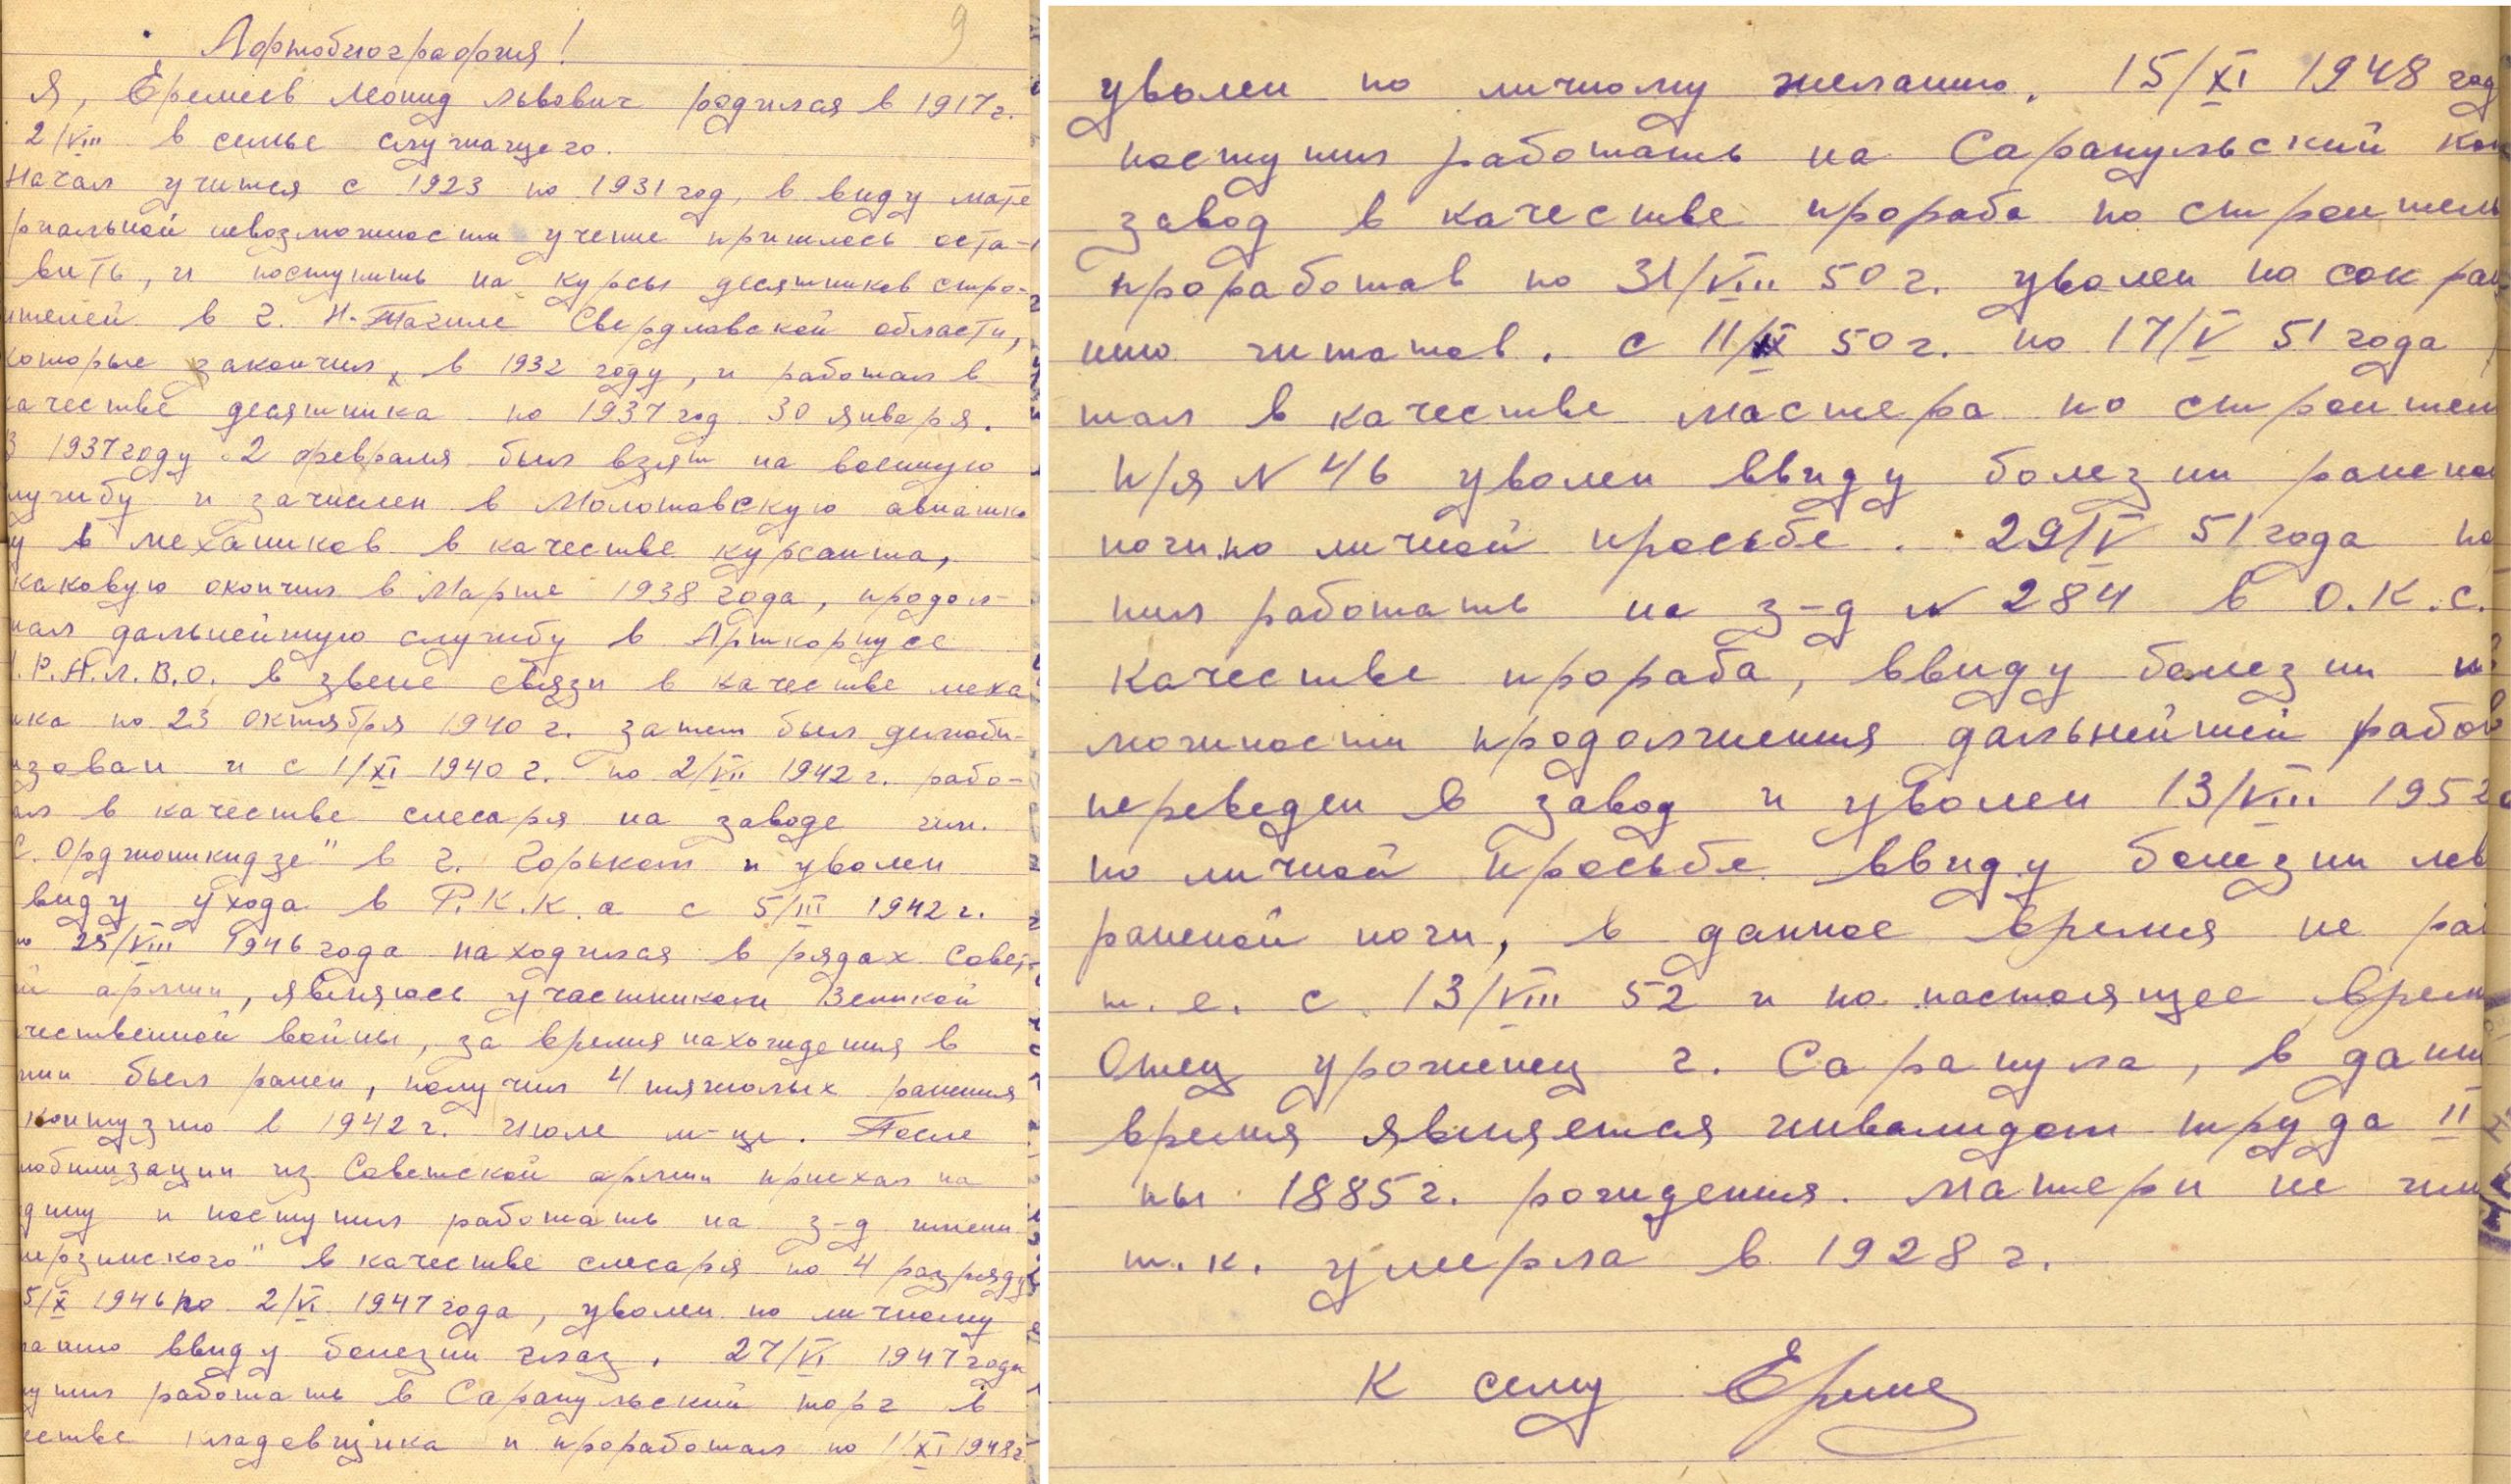 9
Афтобиография!
Я, Еремеев Леонид Львович родился в 1917г.
2/VIII в семье служащего.
Начал учится с 1923 по 1931 год, в виду мате
риальной невозможности учение пришлось оста-
вить, и поступить на курсы десятников стро-
ителей в г. Н-Тагиле Свердловской области,
которые закончил, в 1932 году, и работал в
качестве десятника по 1937 год 30 января.
В 1937 году 2 февраля был взят на военную
лужбу и зачислен в Молотовскую авиашко
у в механиков в качестве курсанта,
каковую окончил в Марте 1938 года, продол-
жал дальнейшую службу в Арткорпусе
.Р.А.Л.В.О. в звене связи в качестве меха
ика по 23 октября 1940 г. затем был демоби-
изован и с 1/XI 1940 г. по 2/VII 1942 г. рабо-
ал в качестве слесаря на заводе им.
С. Орджоникидзе" в г. Горьком и уволен
виду ухода в Р.К.К.а с 5/III 1942 г.
по 25/VIII 1946 года находился в рядах Совет-
й армии, являюсь участником Великой
чественной войны, за время нахождения в
мии был ранен, получил 4 тяжолых ранения
контузию в 1942 г. июле м-це. После
мобилизации из Советской армии приехал на
дину и поступил работать на з-д имени
ержинского" в качестве слесаря по 4 разряду
5/X 1946 по 2/VI 1947 года, уволен по личному
ланию ввиду болезни глаз. 27/VI 1947 года
упил работать в Сарапульский торг в
честве кладовщика и проработал по 1/XI 1948 г.
уволен по личному желанию. 15/XI 1948 год
поступил работать на Сарапульский кож
завод в качестве прораба по строитель
проработав по 31/VIII 50 г. уволен по сокра
нию штатов. С 11/IX 50 г. по 17/V 51 года
тал в качестве мастера по строител
п/я N 46 уволен ввиду болезни ранено
ноги.по личной просьбе. 29/V 51 года по
пил работать на з-д N 284 в О.К.С.
качестве прораба, ввиду болезни не
можности продолжения дальнейшей работ
переведен в завод и уволен 13/VIII 1952
по личной просьбе ввиду болезни лев
раненой ноги, в данное время не ра
т.е. с 13/VIII 52 и по настоящее врем
Отец уроженец г. Сарапула, в данн
время является инвалидом труда II
пы 1885 г. рождения. Матери не им
т.к. умерла в 1928 г.
К сему Ереме